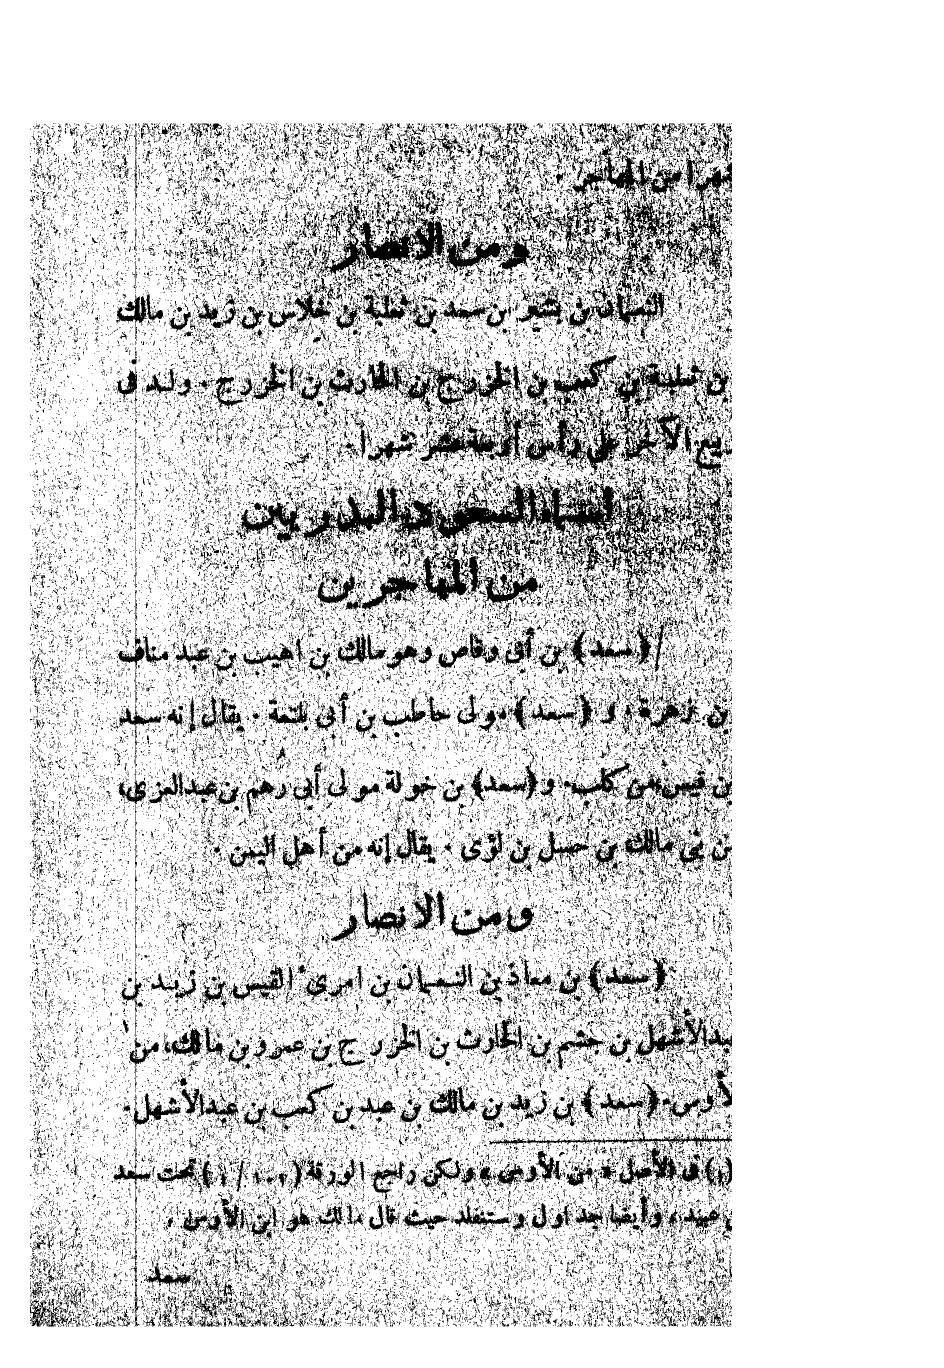 شهرا من المهاجر .
ومن الانصار
النعمان بن بشير بن سعد بن ثعلبة بن خلاس بن زيد بن مالك
بن ثعلبة بن كعب بن الخزرج بن الحارث بن الخزرج . ولد فى
ربيع الآخر على رأس أربعة عشر شهرا .
أسماء السعود البدريين
من المهاجرين
(سعد) بن أبى وقاص وهو مالك بن اهيب بن عبد مناف
بن زهرة . و (سعد) مولى حاطب بن أبى بلتعة . يقال إنه سعد
بن قيس من كلب . و (سعد) بن خولة مولى أبى رهم بن عبدالعزى،
من بنى مالك بن حسل بن لؤى . يقال إنه من أهل اليمن .
ومن الانصار
(سعد) بن معاذ بن النعمان بن امرئ القيس بن زيد بن
عبدالأشهل بن جشم بن الحارث بن الخزرج بن عمرو بن مالك، من
الأوس . (سعد) بن زيد بن مالك بن عبد بن كعب بن عبدالأشهل .
(١) فى الأصل « من الأوس » ولكن راجع الورقة تحت سعد
بن عبيد ، وأيضا جداول وستنفلد حيث قال مالك هو ابن الأوس .
سعد